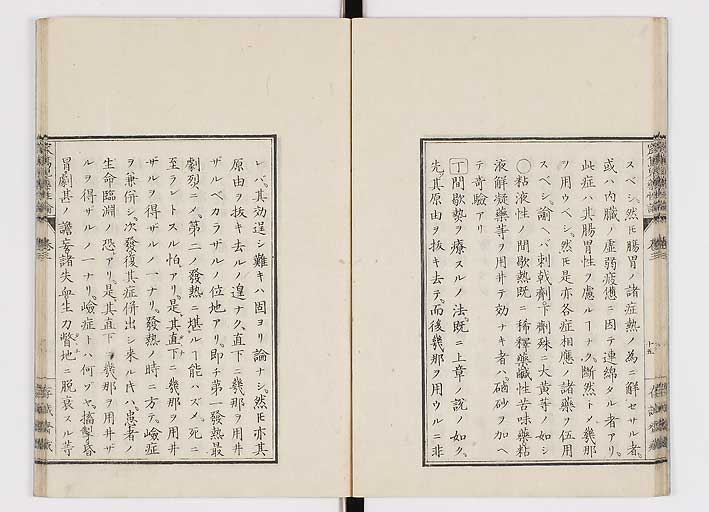 スベシ然𪜈腸胃ノ諸症熱ノ為ニ解セサル者
或ハ内臓ノ虚弱疲憊ニ因テ連綿タル者アリ
此症ハ其腸胃性ヲ慮ルヿナク断然トメ幾那
ヲ用ウベシ然𪜈是亦各症相應ノ諸藥ヲ伍用
スベシ諭ヘバ刺戟劑下劑殊ニ大黄等ノ如シ
○粘液性ノ間歇熱既ニ稀釋藥鹹性苦味藥粘
液解凝藥等ヲ用井テ効ナキ者ハ硇砂ヲ加ヘ
テ奇驗アリ
丁間歇勢ヲ療スルノ法既ニ上章ノ説ノ如ク
先其原由ヲ抜キ去テ而後幾那ヲ用ウルニ非
レバ其効逞シ難キハ固ヨリ論ナシ然𪜈亦其
原由ヲ抜キ去ルノ遑ナク直下ニ幾那ヲ用井
ザルベカラザルノ位地アリ即チ第一發熱最
劇烈ニノ第二ノ發熱ニ堪ルヿ能ハズメ死ニ
至ラントスル怕アリ是其直下ニ幾那ヲ用井
ザルヲ得ザルノ一ナリ發熱ノ時ニ方テ嶮症
ヲ兼併シ次發復其症併出シ来ル𪜈ハ患者ノ
生命臨淵ノ恐アリ是其直下ニ幾那ヲ用井ザ
ルヲ得ザルノ一ナリ嶮症トハ何ゾヤ搐掣昏
冒劇甚ノ譫妄諸失血生力瞥地ニ脱衰スル等